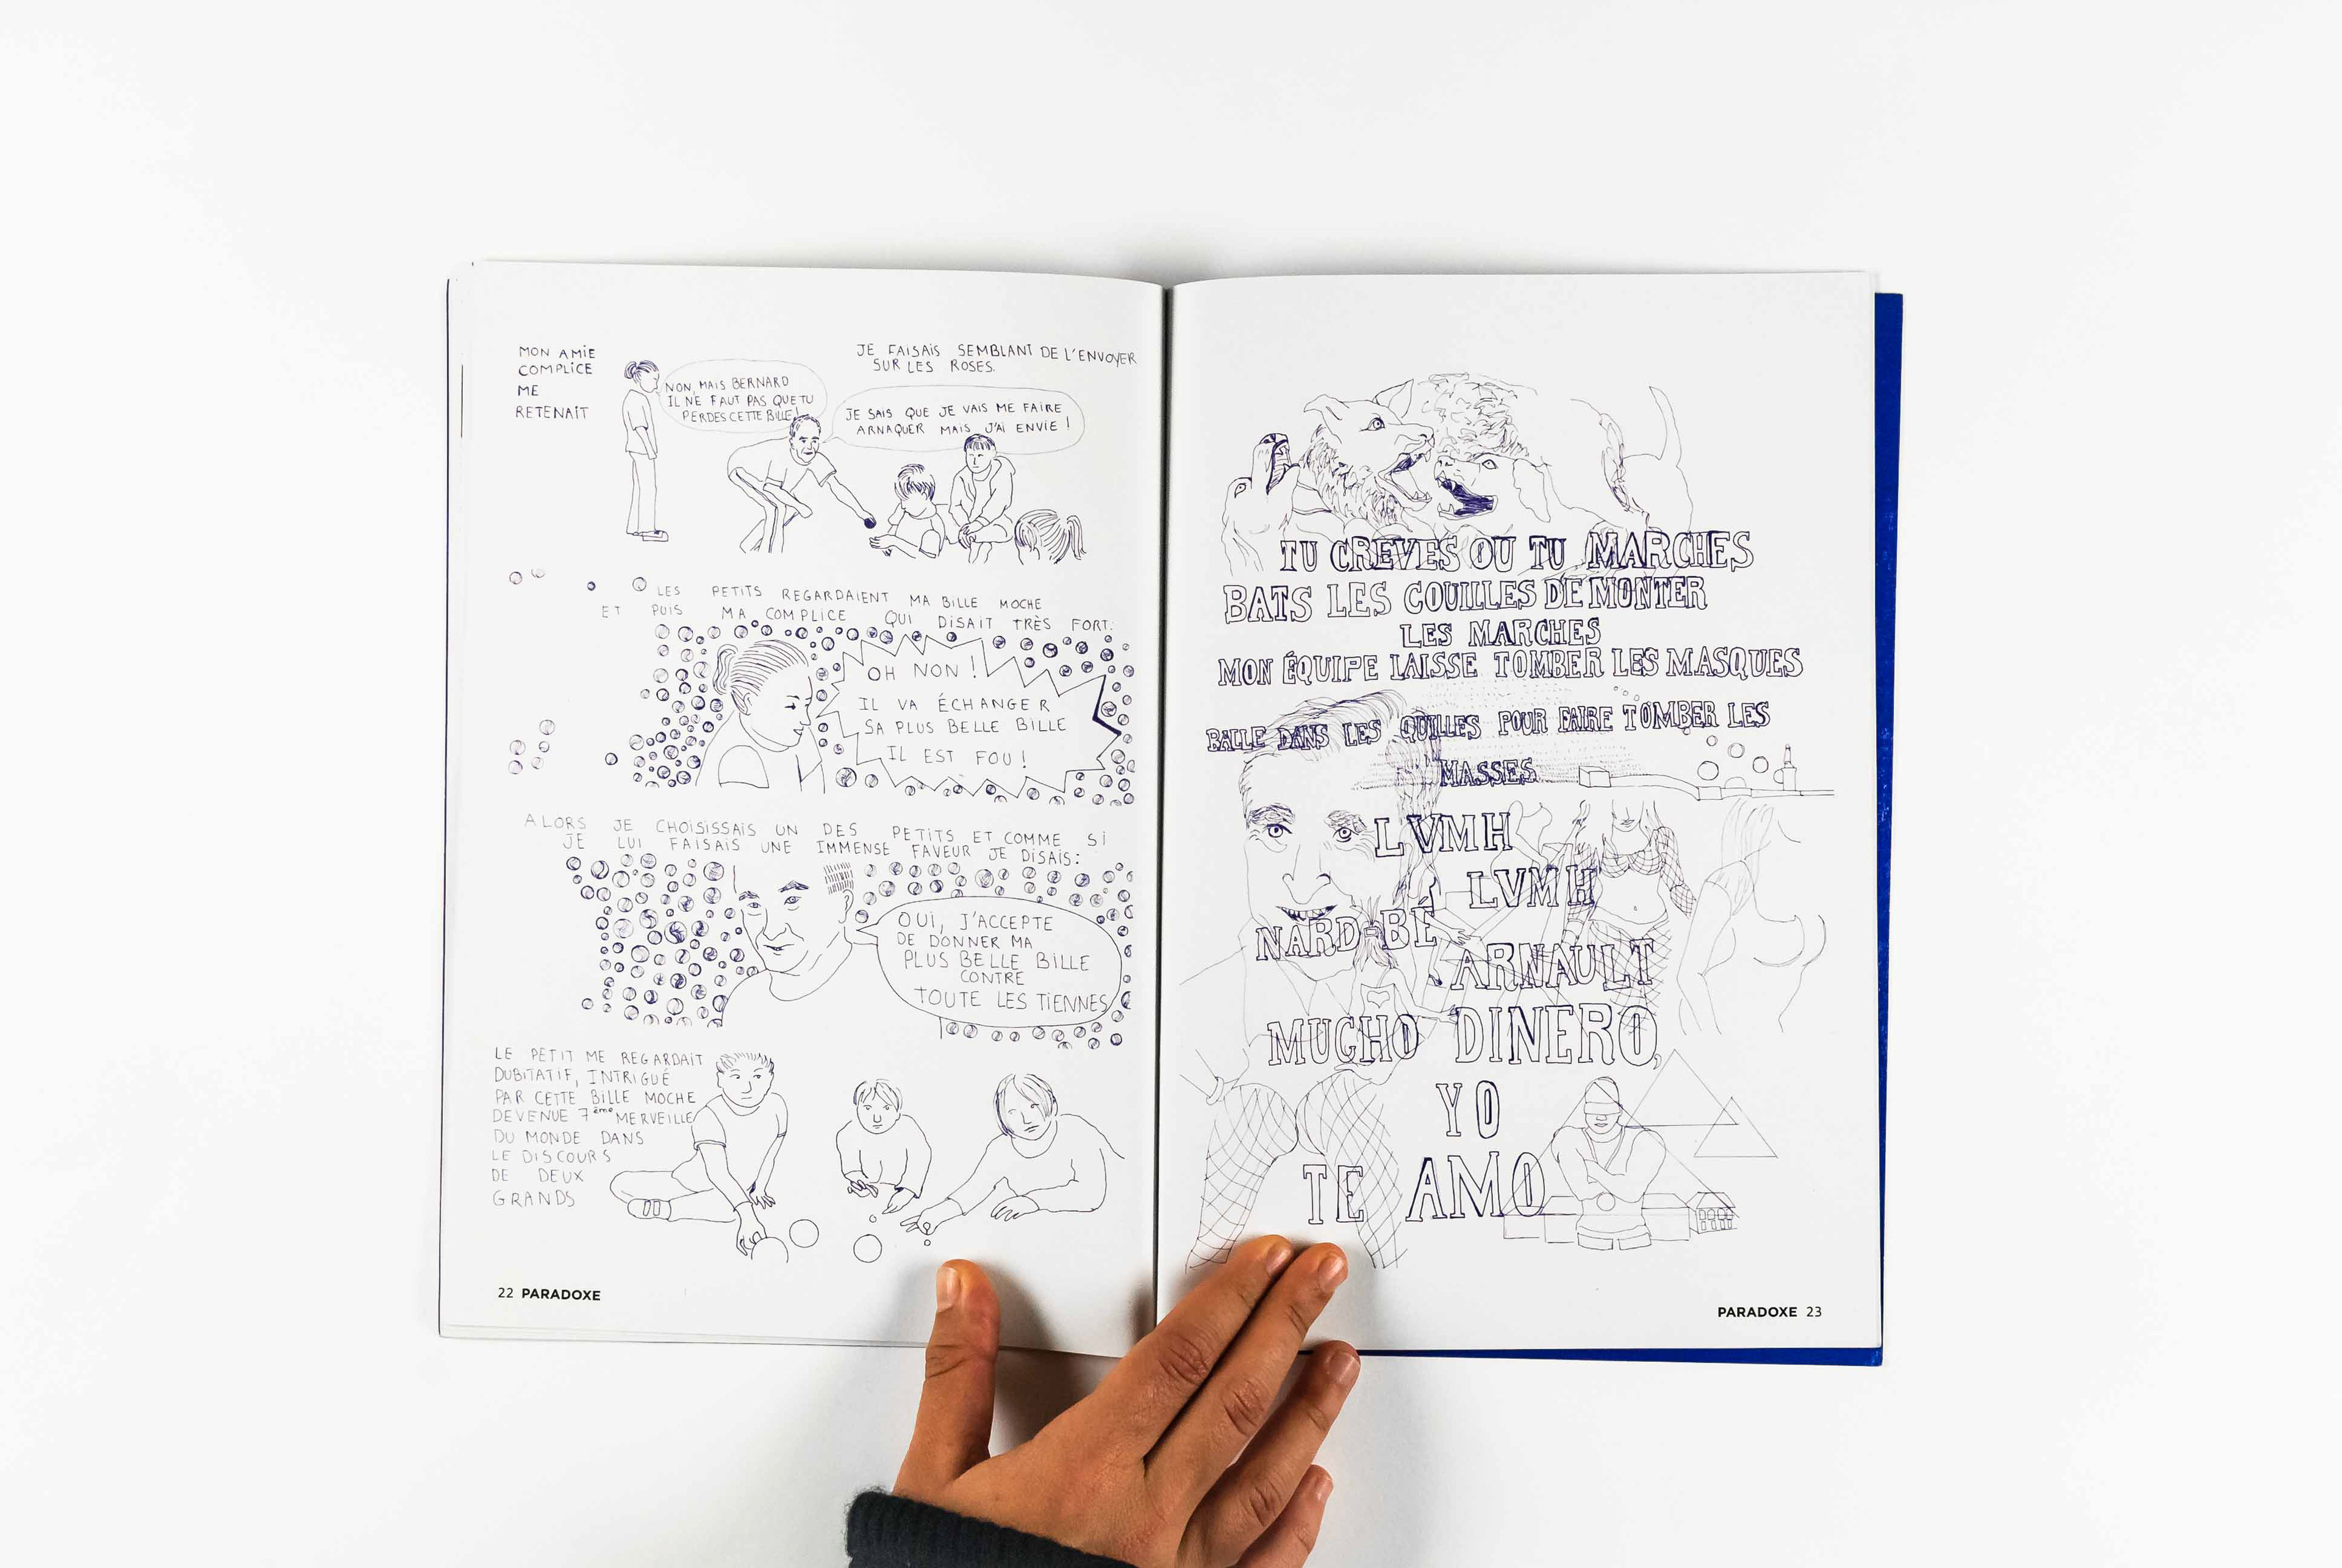 MON AMIE
COMPLICE
ME
RETENAIT
NON, MAIS BERNARD
IL NE FAUT PAS QUE TU
PERDES CETTE BILLE!
JE FAISAIS SEMBLANT DE L'ENVOYER
SUR LES ROSES.
JE SAIS QUE JE VAIS ME FAIRE
ARNAQUER MAIS J'AI ENVIE !
LES PETITS REGARDAIENT MA BILLE MOCHE
ET PUIS MA COMPLICE QUI DISAIT TRÈS FORT:
OH NON !
IL VA ÉCHANGER
SA PLUS BELLE BILLE
IL EST FOU !
ALORS JE CHOISISSAIS UN DES PETITS ET COMME SI
JE LUI FAISAIS UNE IMMENSE FAVEUR JE DISAIS:
OUI, J'ACCEPTE
DE DONNER MA
PLUS BELLE BILLE
CONTRE
TOUTE LES TIENNES
LE PETIT ME REGARDAIT
DUBITATIF, INTRIGUÉ
PAR CETTE BILLE MOCHE
DEVENUE 7ème MERVEILLE
DU MONDE DANS
LE DISCOURS
DE DEUX
GRANDS
22 PARADOXE
TU CREVES OU TU MARCHES
BATS LES COUILLES DE MONTER
LES MARCHES
MON ÉQUIPE LAISSE TOMBER LES MASQUES
BALLE DANS LES QUILLES POUR FAIRE TOMBER LES
MASSES
LVMH
LVMH
NARD-BÉ
ARNAULT
MUCHO DINERO,
YO
TE AMO
PARADOXE 23